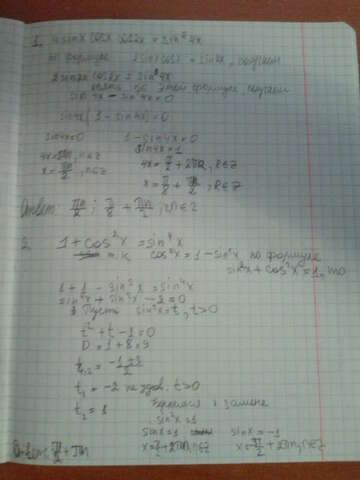 1. 4sinx cosx cos2x = sin²4x
по формуле 2sinx cosx = sin2x, получаем
2sin2x cos2x = sin²4x
опять по этой формуле получаем
sin4x - sin²4x = 0
sin4x(1 - sin4x) = 0
sin4x = 0 1 - sin4x = 0
4x = πn, n∈Z sin4x = 1
4x = π/2 + 2πn, n∈Z
x = π/8 + πn/2, n∈Z
Ответ: πn/4; π/8 + πn/2, n∈Z
2. 1 + cos²x = sin⁴x
т.к. cos²x = 1 - sin²x по формуле
sin²x + cos²x = 1, то
1 + 1 - sin²x = sin⁴x
sin⁴x + sin²x - 2 = 0
Пусть sin²x = t, t>0
t² + t - 2 = 0
D = 1 + 8 = 9
t₁,₂ = -1±3/2
t₁ = -2 не удов. t>0
t₂ = 1 Вернемся к замене
sin²x = 1
sinx = 1 sinx = -1
x = π/2 + 2πn, n∈Z x = -π/2 + 2πn, n∈Z
Ответ: π/2 + πn